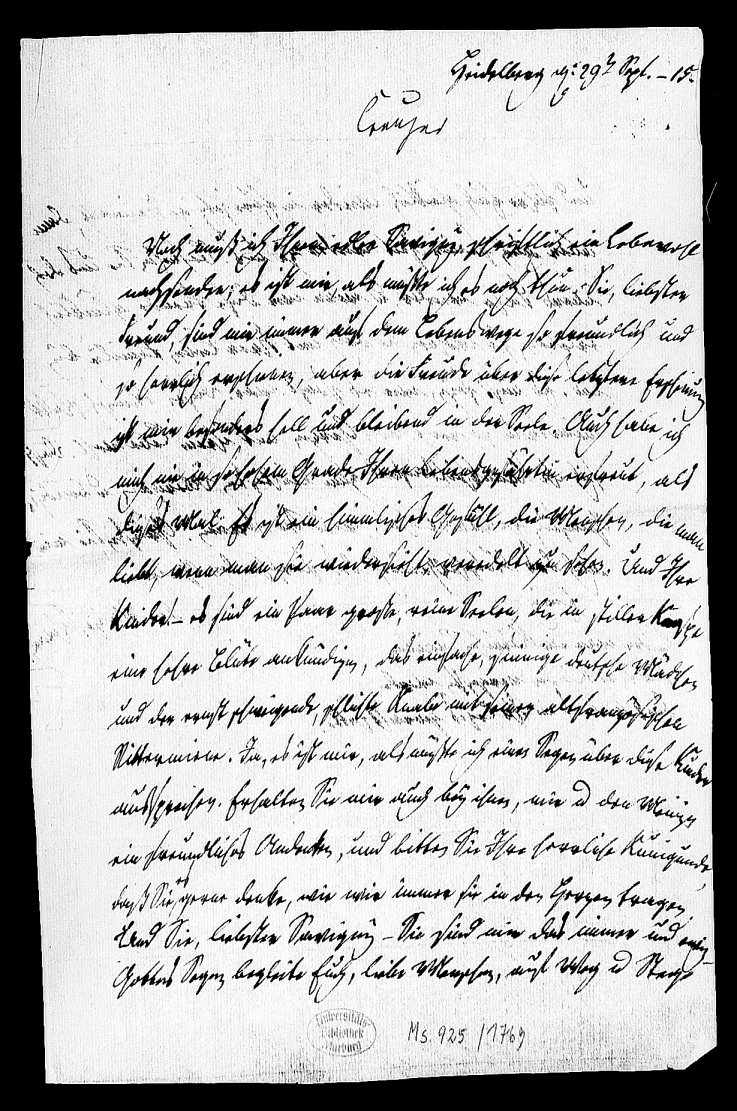 Heidelberg d. 29t Sept. – 15.
Creuzer
Noch muß ich Ihnen edler Savigny, schriftlich ein Lebewohl
nachsenden; es ist mir, als müßte ich es noch thun. Sie, liebster
Freund, sind mir immer auf dem Lebenswege so freundlich und
so herrlich erschienen, aber die Freude über diese letztere Erscheinung
ist mir besonders hell und bleibend in der Seele. Auch habe ich
mich nie in so hohem Grade Ihrer Lebensgefährtin erfreut, als
dieses Mal. Es ist ein himmlisches Gefühl, die Menschen, die man
liebt, wenn man sie wiedersieht, veredelt zu sehen. Und Ihre
Kinder! – es sind ein Paar große, reine Seelen, die in stiller Knospe
eine hohe Blüte ankündigen, das einfache, sinnige deutsche Mädchen
und der ernst schweigende, schlichte Knabe mit seiner altfranzösischen
Rittermiene. Ja, es ist mir, als müßte ich einen Segen über diese Kinder
aussprechen. Erhalten Sie mir auch bey ihnen, mir u den Meinigen
ein freundliches Andenken, und bitten Sie Ihre herrliche Kunigunde,
daß Sie gerne denke, wie wir immer sie in den Herzen tragen.
Und Sie, liebster Savigny – Sie sind mir das immer und ewig –
Gottes Segen begleite Euch, liebe Menschen, auf Weg u Stege
Universitäts-
Bibliothek
Marburg
Ms. 925 / 1769